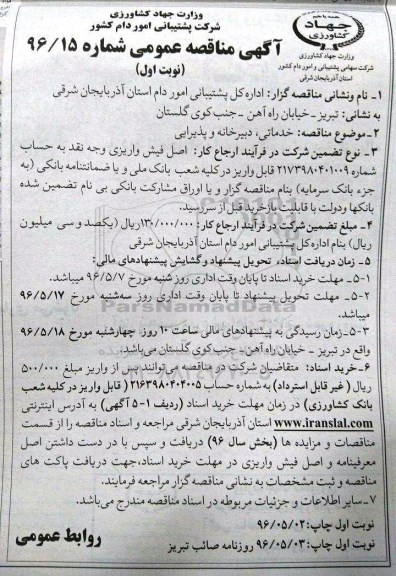 وزارت جهاد کشاورزی
شرکت پشتیبانی امور دام کشور
آگهی مناقصه عمومی شماره ۹۶/۱۵
(نوبت اول)
همه با هم
جهاد
کشاورزی
وزارت جهاد کشاورزی
شرکت سهامی پشتیبانی و امور دام کشور
استان آذربایجان شرقی
۱- نام ونشانی مناقصه گزار: اداره کل پشتیبانی امور دام استان آذربایجان شرقی
به نشانی: تبریز - خیابان راه آهن - جنب کوی گلستان
۲-موضوع مناقصه: خدماتی، دبیرخانه و پذیرایی
۳- نوع تضمین شرکت در فرآیند ارجاع کار: اصل فیش واریزی وجه نقد به حساب
شماره ۲۱۷۳۹۸۰۴۰۱۰۰۹ قابل واریز در کلیه شعب بانک ملی و یا ضمانتنامه بانکی (به
جزء بانک سرمایه) بنام مناقصه گزار و یا اوراق مشارکت بانکی بی نام تضمین شده
بانکها ودولت با قابلیت بازخرید قبل از سررسید.
۴- مبلغ تضمین شرکت در فرآیند ارجاع کار: ۱۳۰/۰۰۰/۰۰۰ریال (یکصد و سی میلیون
ریال) بنام اداره کل پشتیبانی امور دام استان آذربایجان شرقی
۵- زمان دریافت اسناد، تحویل پیشنهاد و گشایش پیشنهادهای مالی:
۵-۱- مهلت خرید اسناد تا پایان وقت اداری روز شنبه مورخ ۹۶/۵/۷ میباشد.
۵-۲- مهلت تحویل پیشنهاد تا پایان وقت اداری روز سه‌شنبه مورخ ۹۶/۵/۱۷
میباشد.
ParsNamadData
۵-۳-زمان رسیدگی به پیشنهادهای مالی ساعت ۱۰ روز چهارشنبه مورخ ۹۶/۵/۱۸
واقع در تبریز - خیابان راه آهن- جنب کوی گلستان می‌باشد.
۶-خرید اسناد: متقاضیان شرکت در مناقصه می‌توانند پس از واریز مبلغ ۵۰۰/۰۰۰
ریال (غیر قابل استرداد) به شماره حساب ۲۱۶۳۹۸۰۴۰۴۰۰۵ (قابل واریز در کلیه شعب
بانک کشاورزی) در زمان مهلت خرید اسناد (ردیف ۱-۵ آگهی) به آدرس اینترنتی
www.iranslal.com استان آذربایجان شرقی مراجعه و اسناد مناقصه را از قسمت
مناقصات و مزایده ها (بخش سال ۹۶) دریافت و سپس با در دست داشتن اصل
معرفینامه و اصل فیش واریزی در مهلت خرید اسناد،جهت دریافت پاکت های
مناقصه و ثبت مشخصات به نشانی مناقصه گزار مراجعه فرمایند.
۷-سایر اطلاعات و جزئیات مربوطه در اسناد مناقصه مندرج می‌باشد.
نوبت اول چاپ: ۹۶/۰۵/۰۲
نوبت اول چاپ: ۹۶/۰۵/۰۳ روزنامه صائب تبریز
روابط عمومی